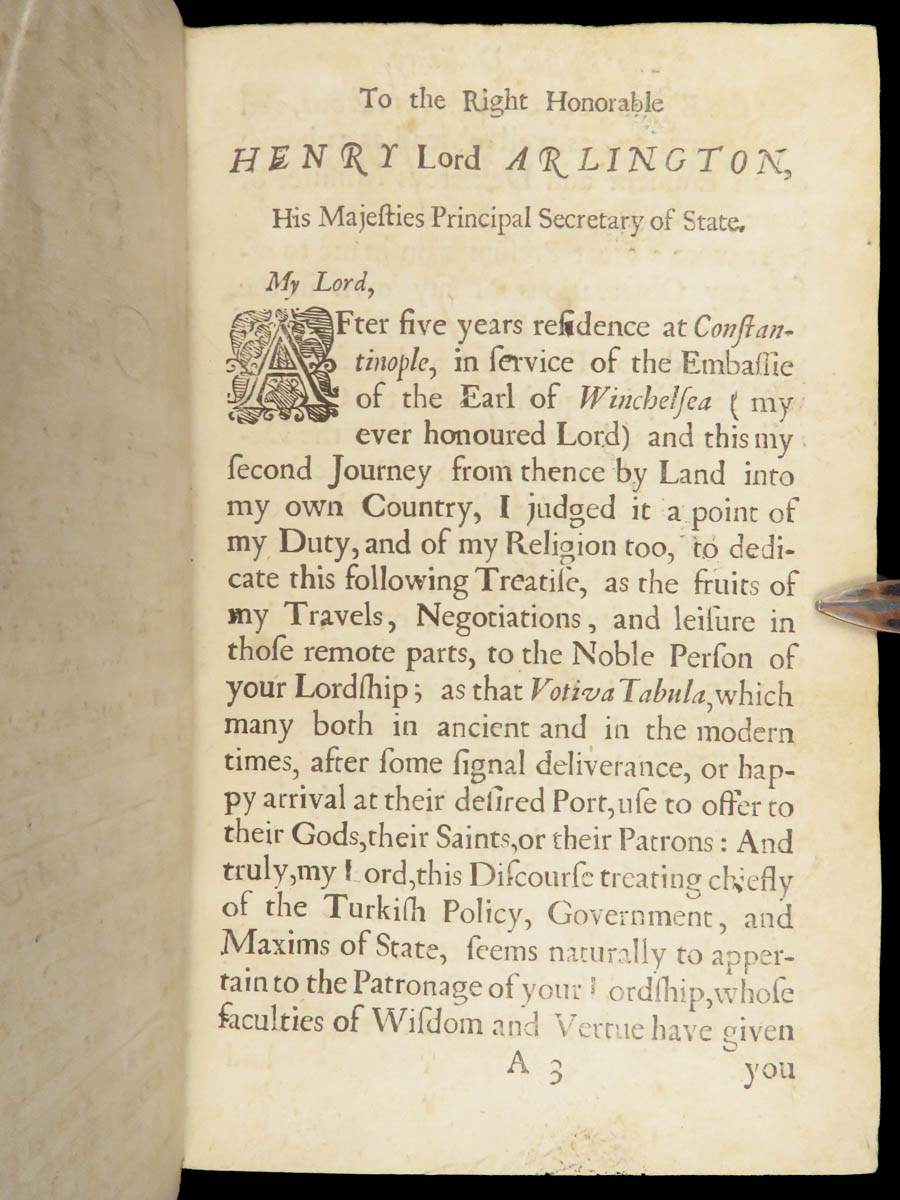 To the Right Honorable
HENRY Lord ARLINGTON,
His Majeſties Principal Secretary of State.
My Lord,
AFter five years reſidence at Conſtan-
tinople, in ſervice of the Embaſſie
of the Earl of Winchelſea ( my
ever honoured Lord) and this my
ſecond Journey from thence by Land into
my own Country, I judged it a point of
my Duty, and of my Religion too, to dedi-
cate this following Treatiſe, as the fruits of
my Travels, Negotiations, and leiſure in
thoſe remote parts, to the Noble Perſon of
your Lordſhip; as that Votiva Tabula, which
many both in ancient and in the modern
times, after ſome ſignal deliverance, or hap-
py arrival at their deſired Port, uſe to offer to
their Gods, their Saints, or their Patrons: And
truly, my Lord, this Diſcourſe treating chiefly
of the Turkiſh Policy, Government, and
Maxims of State, ſeems naturally to apper-
tain to the Patronage of your Lordſhip, whoſe
faculties of Wiſdom and Vertue have given
A 3 you